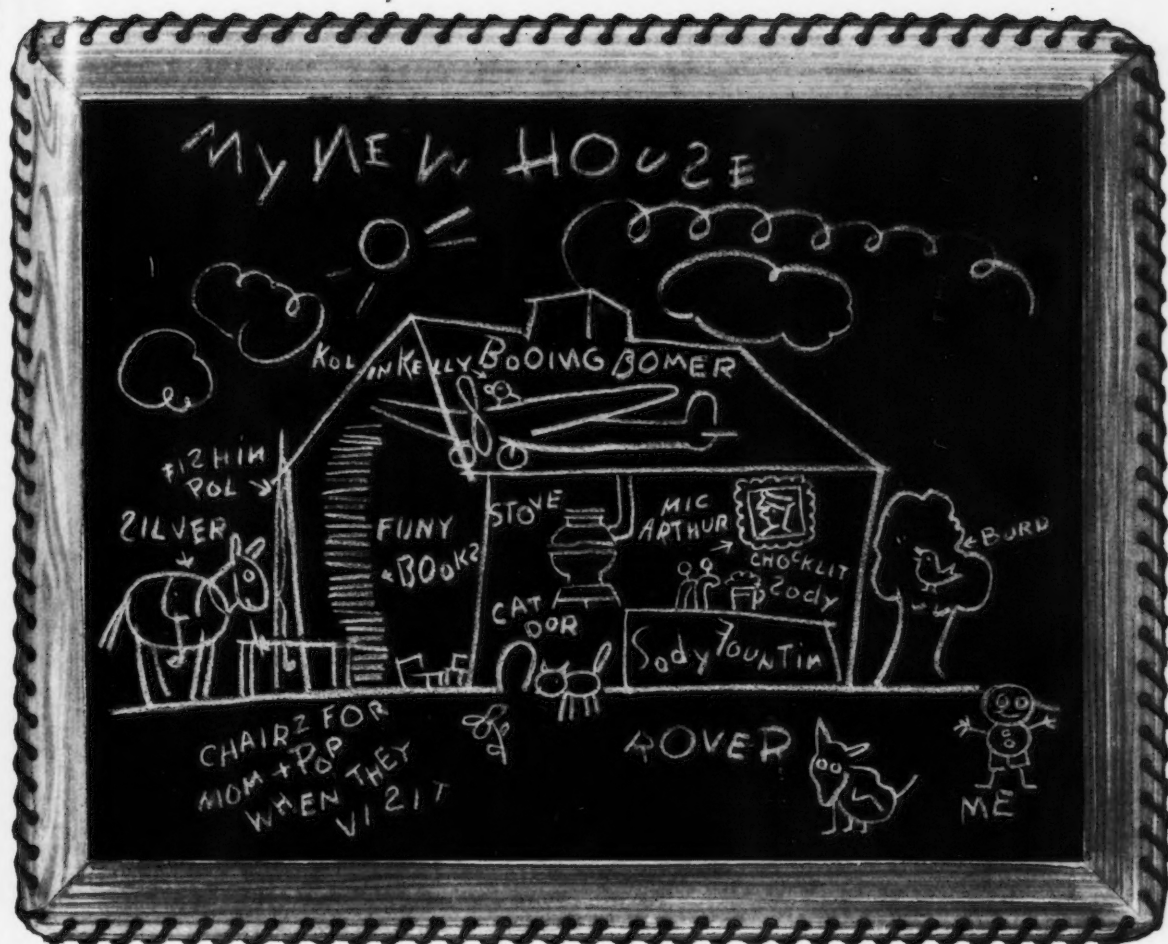 MY NEW HOUZE
KOLIN KELLY BOOING BOMER
FIZHIN
POL
ZILVER
FUNY
BOOKZ
STOVE
MIC
ARTHUR
CHOCKLIT
ZODY
BURD
CAT
DOR
Sody FOUNTIN
CHAIRZ FOR
MOM + POP
WHEN THEY
VIZIT
ROVER
ME